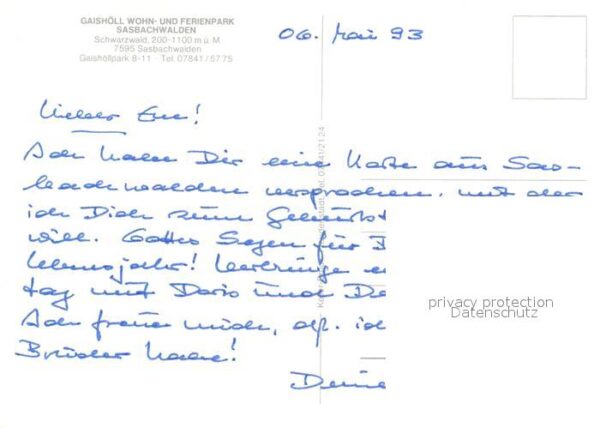 GAISHÖLL WOHN- UND FERIENPARK
SASBACHWALDEN
Schwarzwald, 200-1100 m ü. M.
7595 Sasbachwalden
Gaishöllpark 8-11 · Tel. 07841/5775
06. Mai 93
Lieber
Ich habe Dir eine Karte aus Sas-
bachwalden versprochen, mit der
ich Dich zum Geburtst
will. Gottes Segen für D
Lebensjahr! Verbringe e
tag mit Doris und De
Ich freue mich, daß ich
Brüder habe!
Deine
privacy protection
Datenschutz